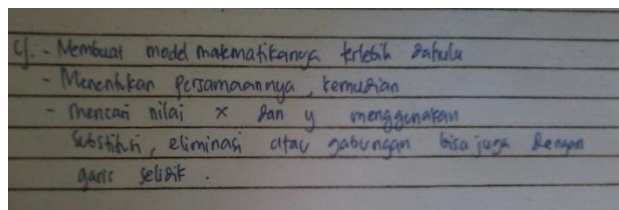 c). - Membuat model matematikanya terlebih dahulu
- Menentukan persamaannya, kemudian
- mencari nilai x dan y menggunakan
Substitusi, eliminasi atau gabungan bisa juga dengan
garis selidik.